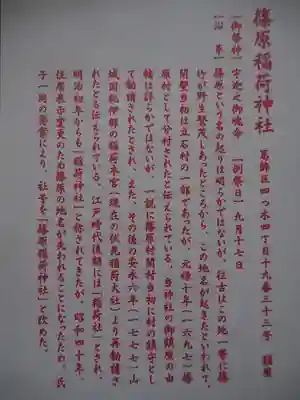 篠原稲荷神社
葛飾区四つ木四丁目十九番三十三号 鎮座
〔御祭神〕宇迦之御魂命 〔例祭日〕九月十七日
〔沿革〕篠原という名の起りは明らかではないが、往古はこの地一帯に篠
竹が野生繁茂しあったところから、この地名が起きたといわれて、
開墾当初は立石村の一部であったが、元禄十年(一六九七)篠
原村として分村されたと伝えられている。当神社の御鎮座の由
緒は詳らかではないが、一説に篠原村開村当初に村の鎮守とし
て勧請されたとされ、また、その後の安永六年(一七七七)山
城国紀伊郡の稲荷本宮(現在の伏見稲荷大社)より再勧請さ
れたとも伝えられている。江戸時代後期には「稲荷社」とされ、
明治初年からも「稲荷神社」と称されてきたが、昭和四十年、
住居表示変更のため篠原の地名が失われることになったため、氏
子一同の発案により、社号を「篠原稲荷神社」と改めた。